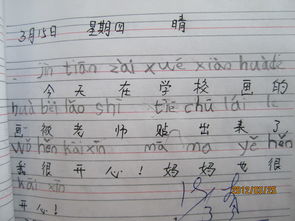 3月15日 星期四 晴
jīn tiān zài xué xiào huà dè
今天在学校画的
huà bèi lǎo shī tiē chū lái le
画被老师贴出来了
wǒ hěn kāi xīn mā ma yě hěn
我很开心！妈妈也很
kāi xīn
开心！